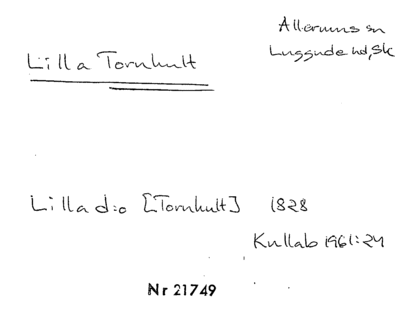 Allerums sn
Luggude hd, Sk
Lilla Tornhult
Lilla d:o [Tornhult] 1828
Kullab 1961:24
Nr 21749